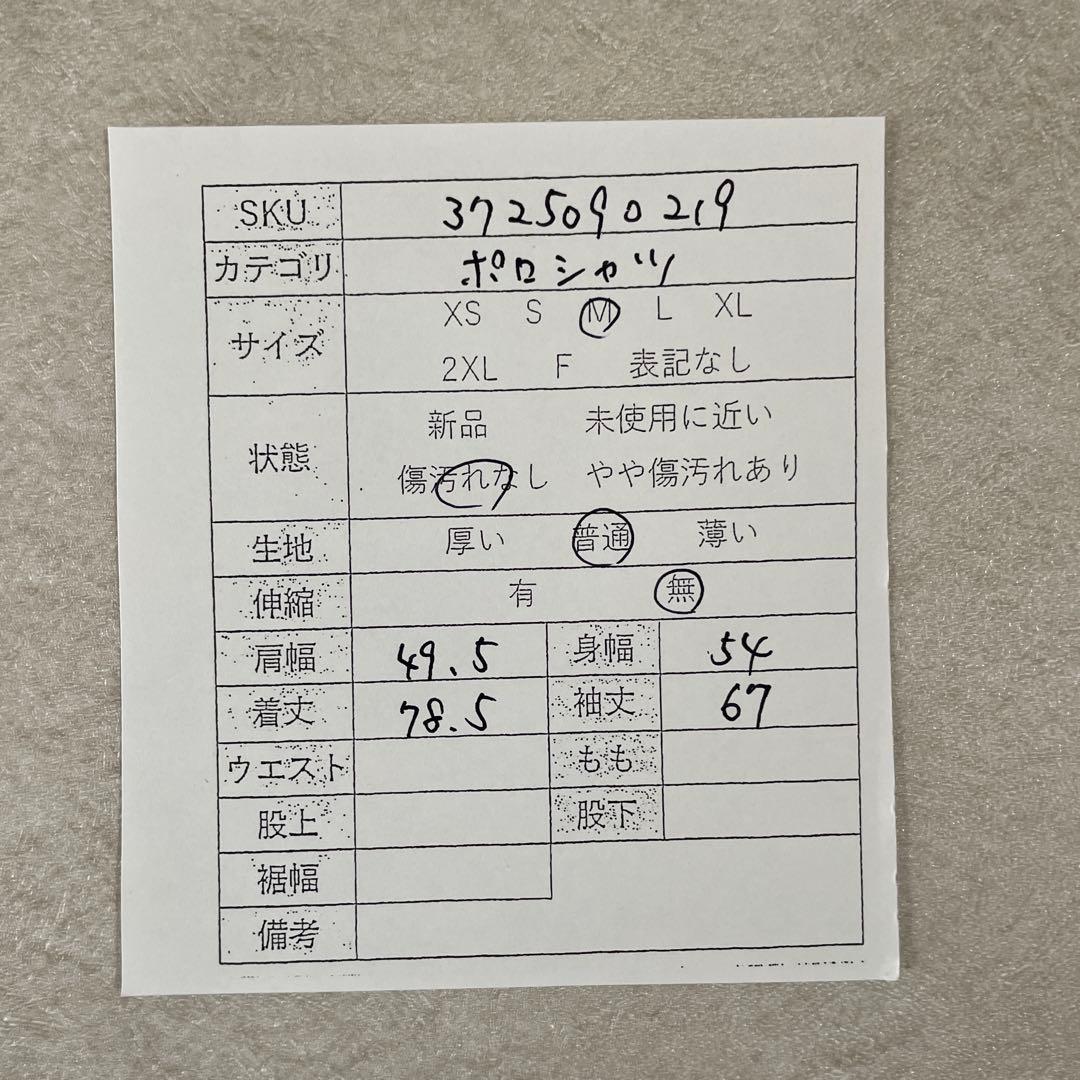 SKU 3725090219
カテゴリ ポロシャツ
サイズ XS S M L XL
2XL F 表記なし
状態 新品 未使用に近い
傷汚れなし やや傷汚れあり
生地 厚い 普通 薄い
伸縮 有 無
肩幅 49.5 身幅 54
着丈 78.5 袖丈 67
ウエスト もも
股上 股下
裾幅
備考